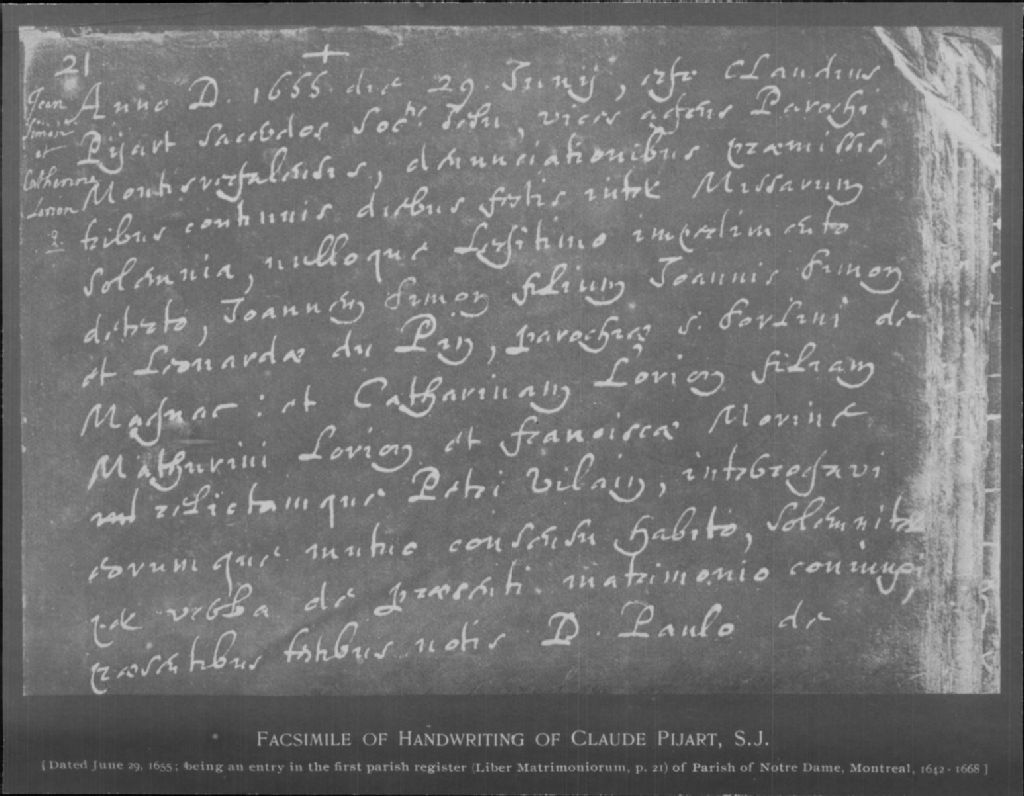 21
+
Jean
Simon
et
Catherine
Lorion
2.
Anno D. 1655 die 29. Junij, ego Claudius
Pijart sacerdos Soc.tis Jesu, vices agens Parochi
Montisregalensis, denunciationibus præmissis,
tribus continuis diebus festis inter Missarum
solemnia, nulloque Legitimo impedimento
detecto, Joannem Simon filium Joannis Simon
et Leonardæ du Pin, parochiæ s. forLini de
Magnac : et Catharinam Lorion filiam
Mathurini Lorion et franciscæ Morine
relictamque Petri Vilain, interrogavi
eorumque mutuo consensu habito, solemniter
per verba de præsenti matrimonio coniunxi,
præsentibus testibus notis D. Paulo de
FACSIMILE OF HANDWRITING OF CLAUDE PIJART, S.J.
[Dated June 29, 1655; being an entry in the first parish register (Liber Matrimoniorum, p. 21) of Parish of Notre Dame, Montreal, 1642-1668]